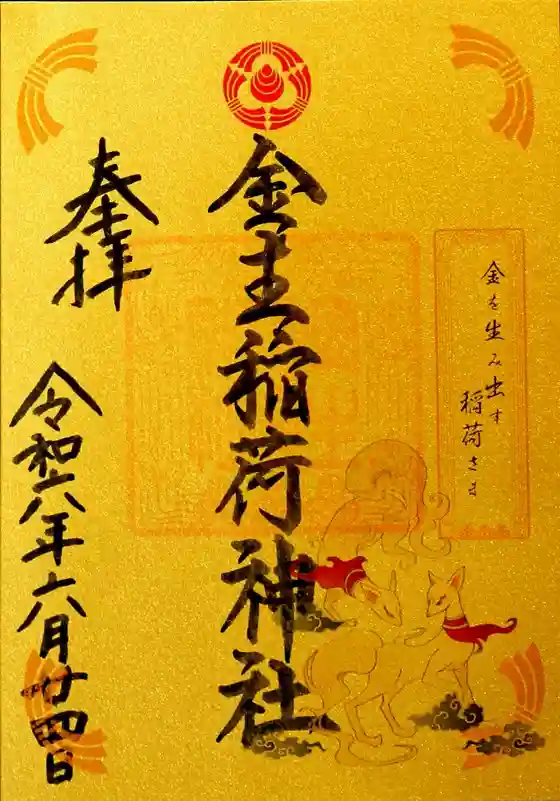 金を生み出す
稲荷さま
金主稲荷神社
奉拝
令和六年六月廿四日